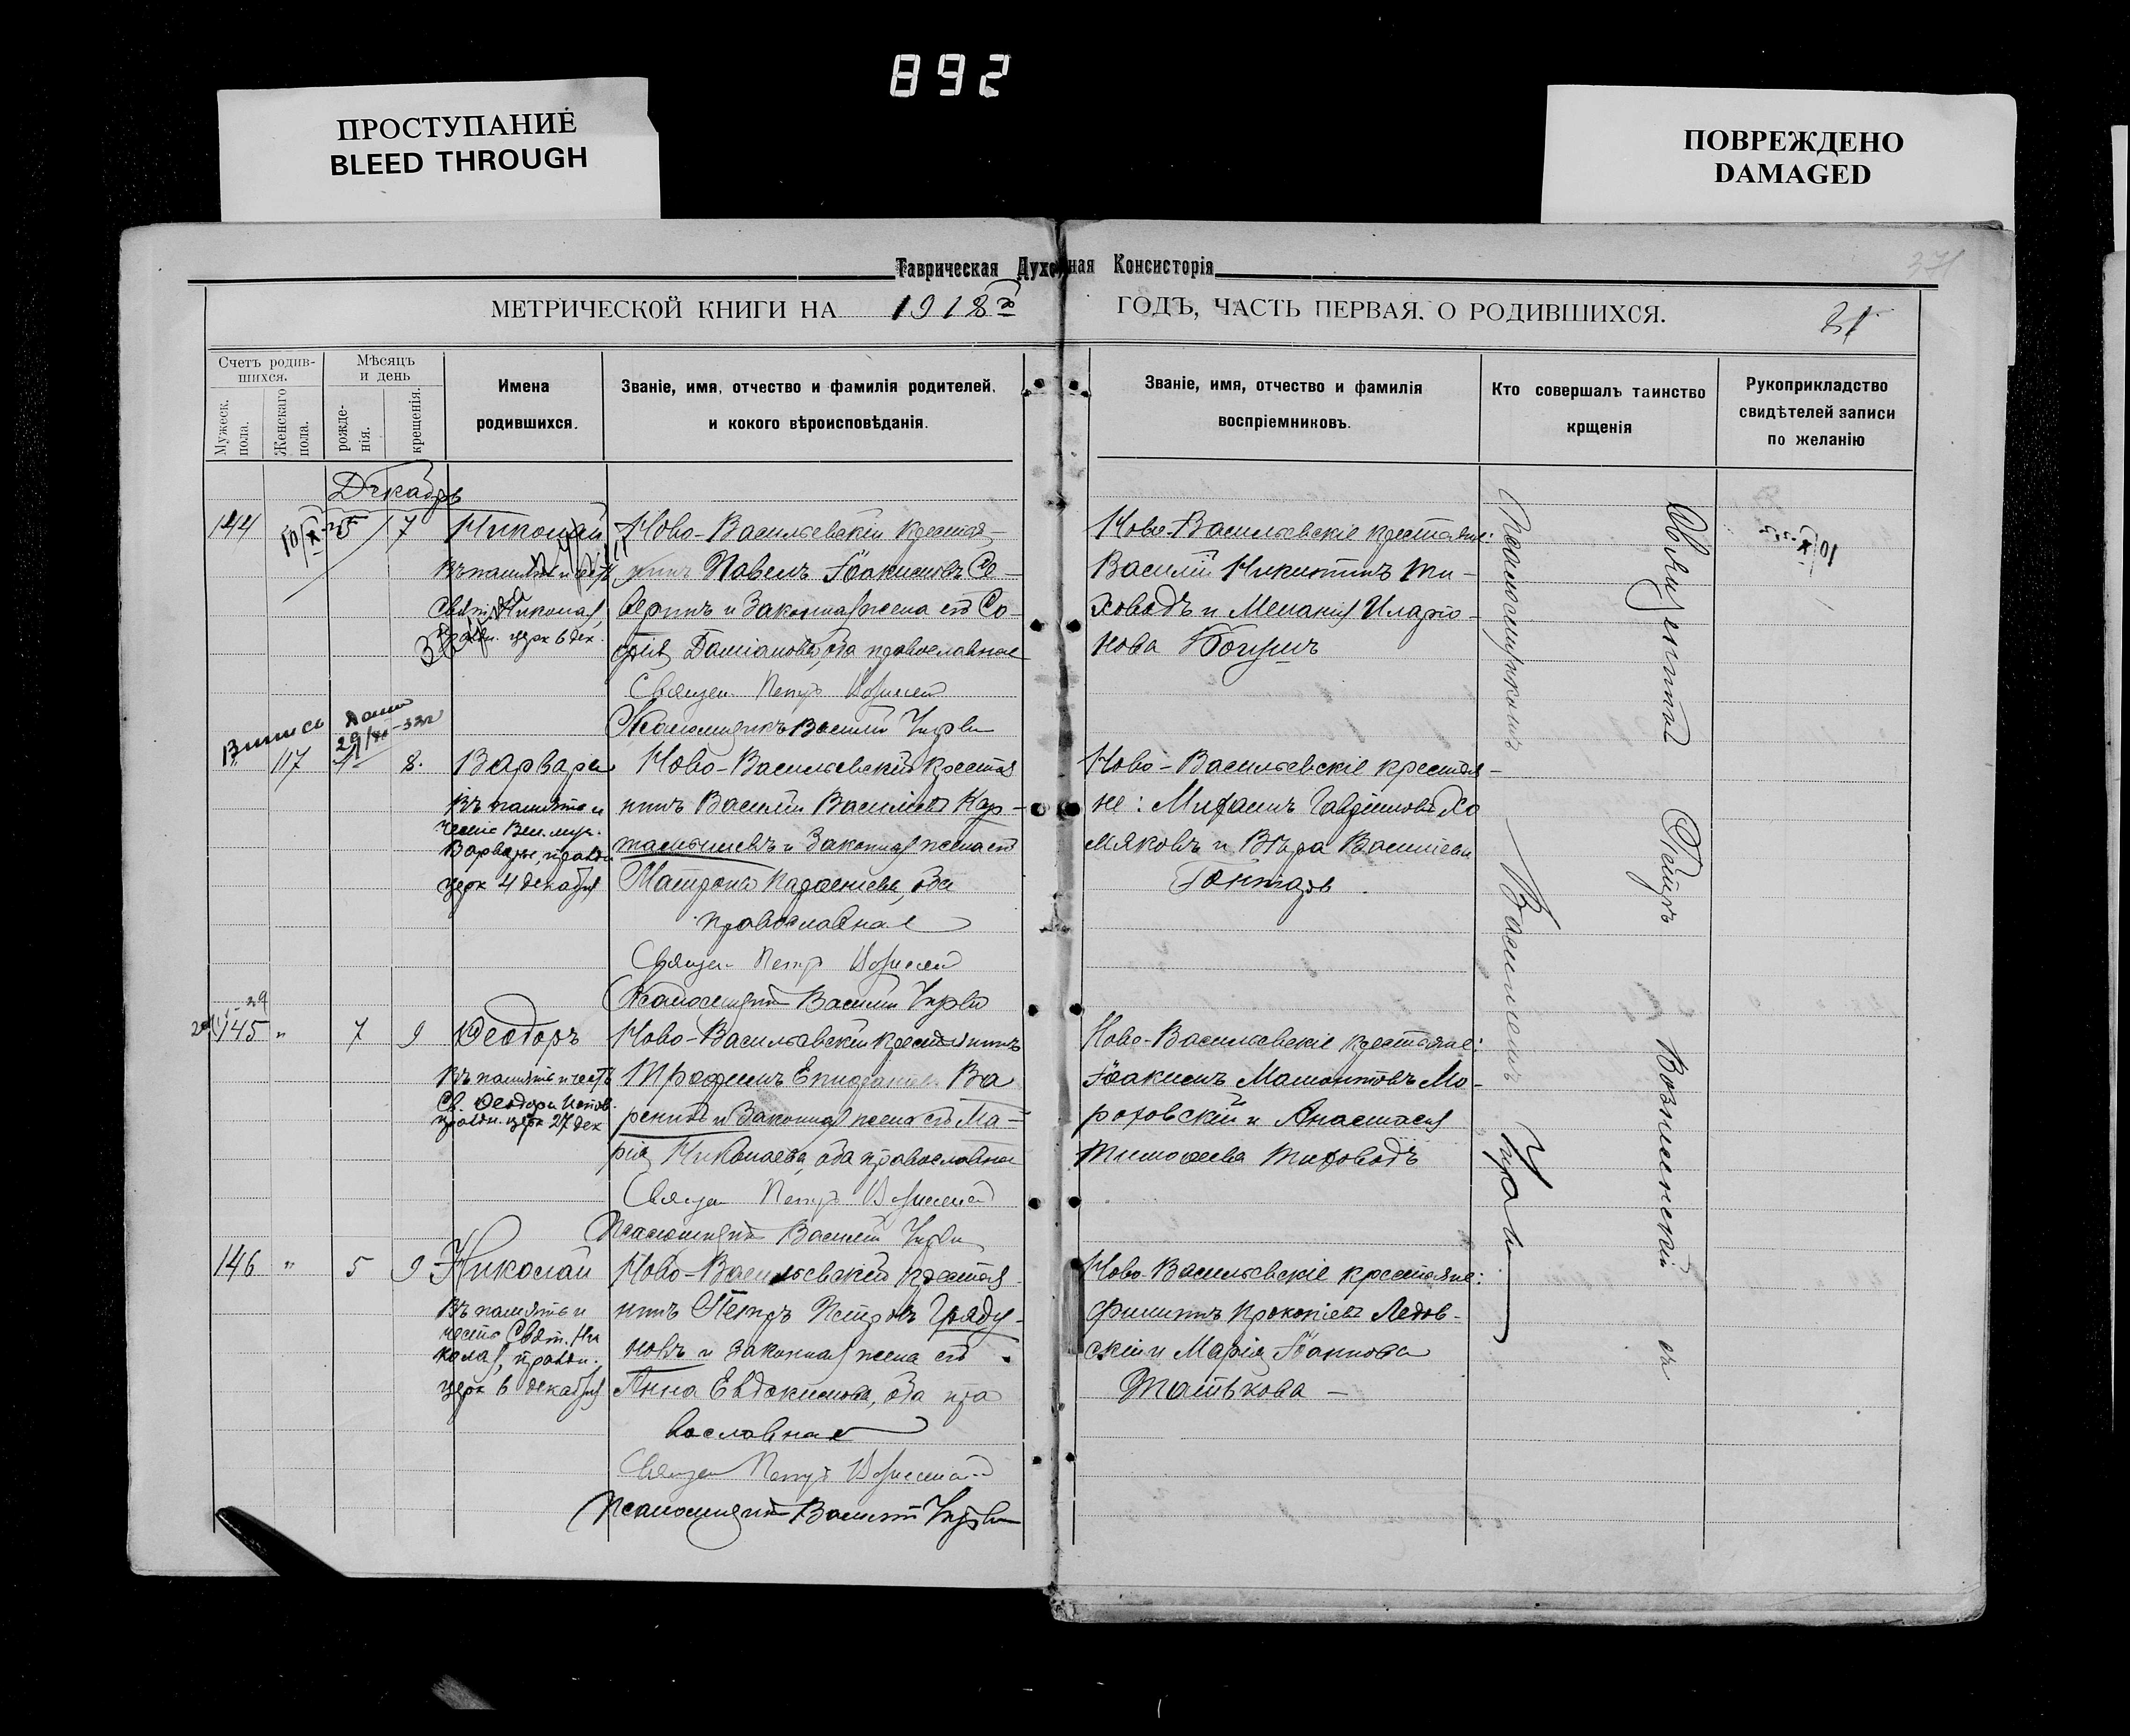 892
ПРОСТУПАНИЕ
BLEED THROUGH
ПОВРЕЖДЕНО
DAMAGED
Таврическая Духовная Консисторія
371
МЕТРИЧЕСКОЙ КНИГИ НА 1918й ГОДЪ, ЧАСТЬ ПЕРВАЯ. О РОДИВШИХСЯ.
Счетъ родив-
шихся.
Мужеск.
пола.
Женскаго
пола.
Мѣсяцъ
и день
рожде-
нія.
крещенія.
Имена
родившихся.
Званіе, имя, отчество и фамилія родителей,
и кокого вѣроисповѣданія.
Званіе, имя, отчество и фамилія
воспріемниковъ.
Кто совершалъ таинство
крщенія
Рукоприкладство
свидѣтелей записи
по желанію
Декабрь
144
5
7
Николай
Въ память и честь
Свят. Николая,
праздн. церк 6 дек.
Ново-Васильевскій крестья-
нинъ Павелъ Іоакимовъ Се-
веринъ и законная жена его Со-
фія Даміанова, оба православные
Священ. Петръ Вознесенскій
Псаломщикъ Василій
Ново-Васильевскіе крестьяне:
Василій Никитинъ Ти-
ховодъ и Меланія Иларіо-
нова Богушъ
Выпись дана
"
17
4
8.
Варвара
Въ память и
честь Вел. муч.
Варвары, праздн
церк 4 декабря
Ново-Васильевскій крестья
нинъ Василій Васильевъ Кар-
тамышевъ и законная жена его
Матрона, оба
православные
Священ. Петръ Вознесенскій
Псаломщикъ Василій
Ново-Васильевскіе крестья-
не: Михаилъ Гавріиловъ Хо
мяковъ и Вѣра Васильева
Гонтарь.
145
"
7
9
Ѳеодоръ
Въ память и честь
Св. Ѳеодора Испов.
праздн. церк 27 дек
Ново-Васильевскій крестьянинъ
Трофимъ Епифановъ Ва
ренико и законная жена его Ма-
рія Николаева, оба православные
Священ Петръ Вознесенскій
Псаломщикъ Василій
Ново-Васильевскіе крестьяне:
Іоакимъ Мамонтовъ Мо-
роховскій и Анастасія
Тимофеева Тиховодъ
146
"
5
9
Николай
Въ память и
честь Свят. Ни
колая, праздн.
церк 6 декабря
Ново-Васильевскій крестья
нинъ Петръ Петровъ Гряду-
новъ и законная жена его
Анна Евдокимова, оба пра
вославные
Священ Петръ Вознесенскій
Псаломщикъ Василій
Ново-Васильевскіе крестьяне:
Филиппъ Прокопіевъ Ледов-
скій и Марія Іоаннова
Танькова –
Священникъ Петръ Вознесенскій съ
Псаломщикомъ Василіемъ